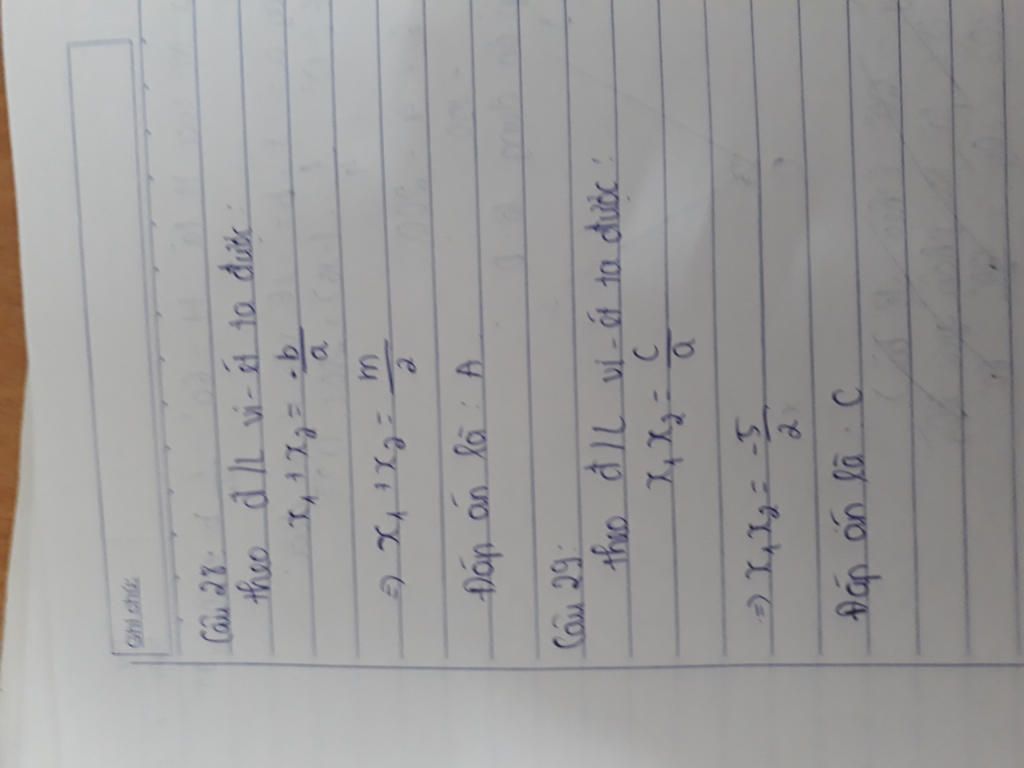 Ghi chú:
Câu 28:
theo đ/L vi-ét ta được:
x₁ + x₂ = -b/a
=) x₁ + x₂ = m/2
Đáp án là: A
Câu 29:
theo đ/L vi-ét ta được:
x₁x₂ = c/a
=) x₁x₂ = -5/2
Đáp án là: C